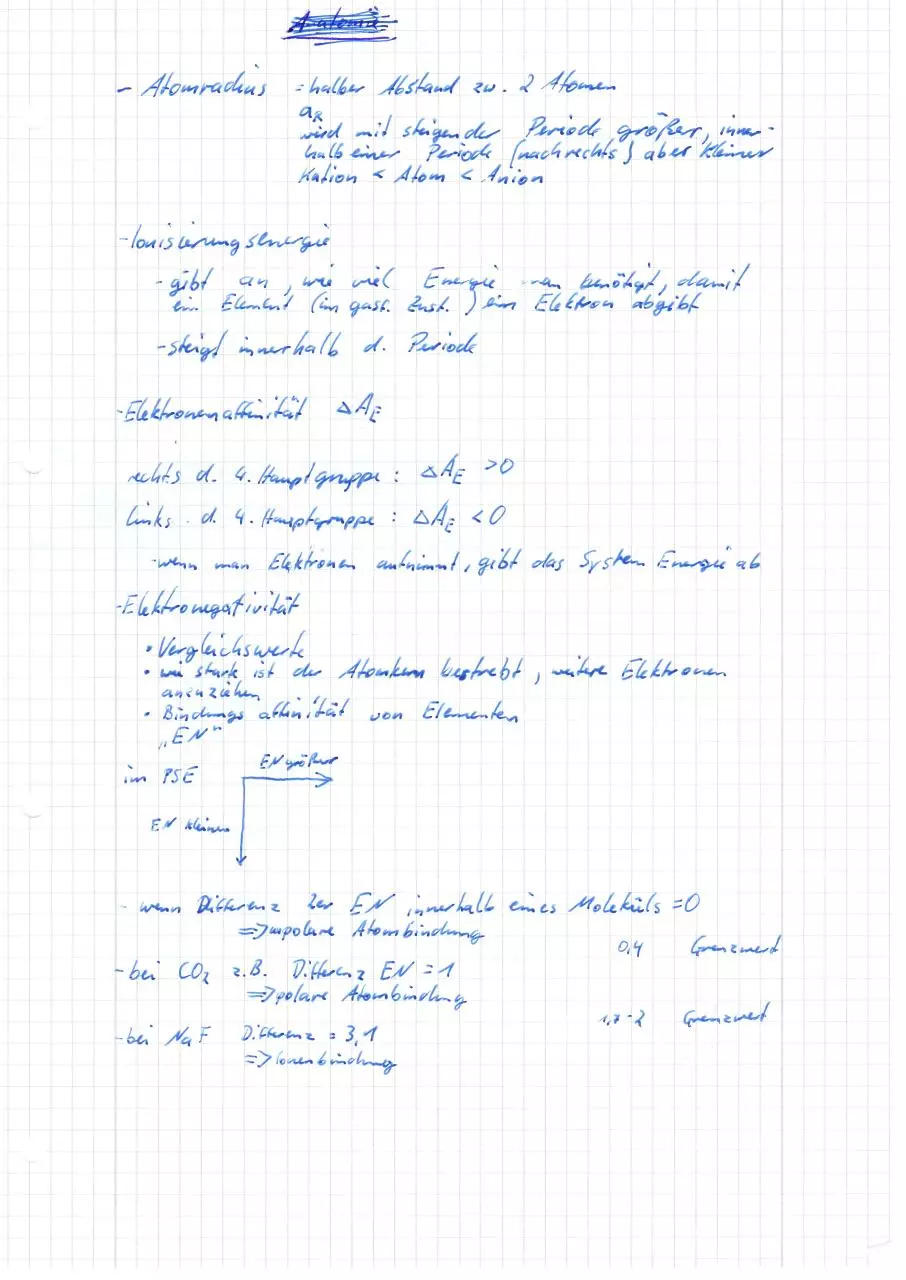 Anatomie
- Atomradius = halber Abstand zw. 2 Atomen
aR
wird mit steigender Periode größer, inner-
halb einer Periode (nach rechts) aber kleiner
Kation < Atom < Anion
- Ionisierungsenergie
- gibt an, wie viel Energie man benötigt, damit
ein Element (im gasf. Zust.) ein Elektron abgibt
- steigt innerhalb d. Periode
- Elektronenaffinität ΔAE
rechts d. 4. Hauptgruppe : ΔAE >0
links d. 4. Hauptgruppe : ΔAE <0
- wenn man Elektronen aufnimmt, gibt das System Energie ab
- Elektronegativität
• Vergleichswerte
• wie stark ist der Atomkern bestrebt, weitere Elektronen
anzuziehen
• Bindungsaffinität von Elementen
„EN"
im PSE EN größer
EN kleiner
- wenn Differenz der EN innerhalb eines Moleküls = 0
=> unpolare Atombindung
0,4 Grenzwert
- bei CO2 z.B. Differenz EN = 1
=> polare Atombindung
1,7-2 Grenzwert
- bei NaF Differenz = 3,1
=> Ionenbindung